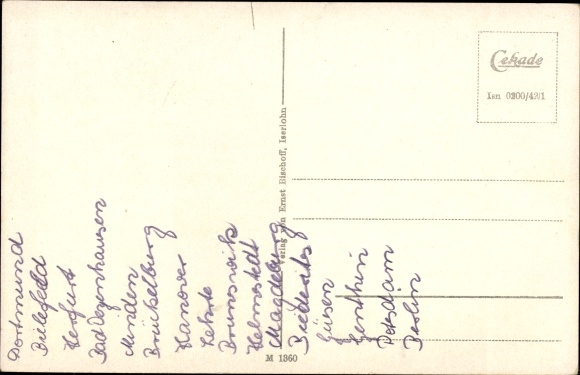 Cekade
Isn 0200/4201
Verlag von Ernst Bischoff, Iserlohn
M 1360
Dortmund
Bielefeld
Herfurt
Bad Oeyenhausen
Minden
Brückelburg
Hanover
Lehrte
Brunsweik
Helmstedt
Magdeburg
Biederitz
Güsen
Genthin
Potsdam
Berlin